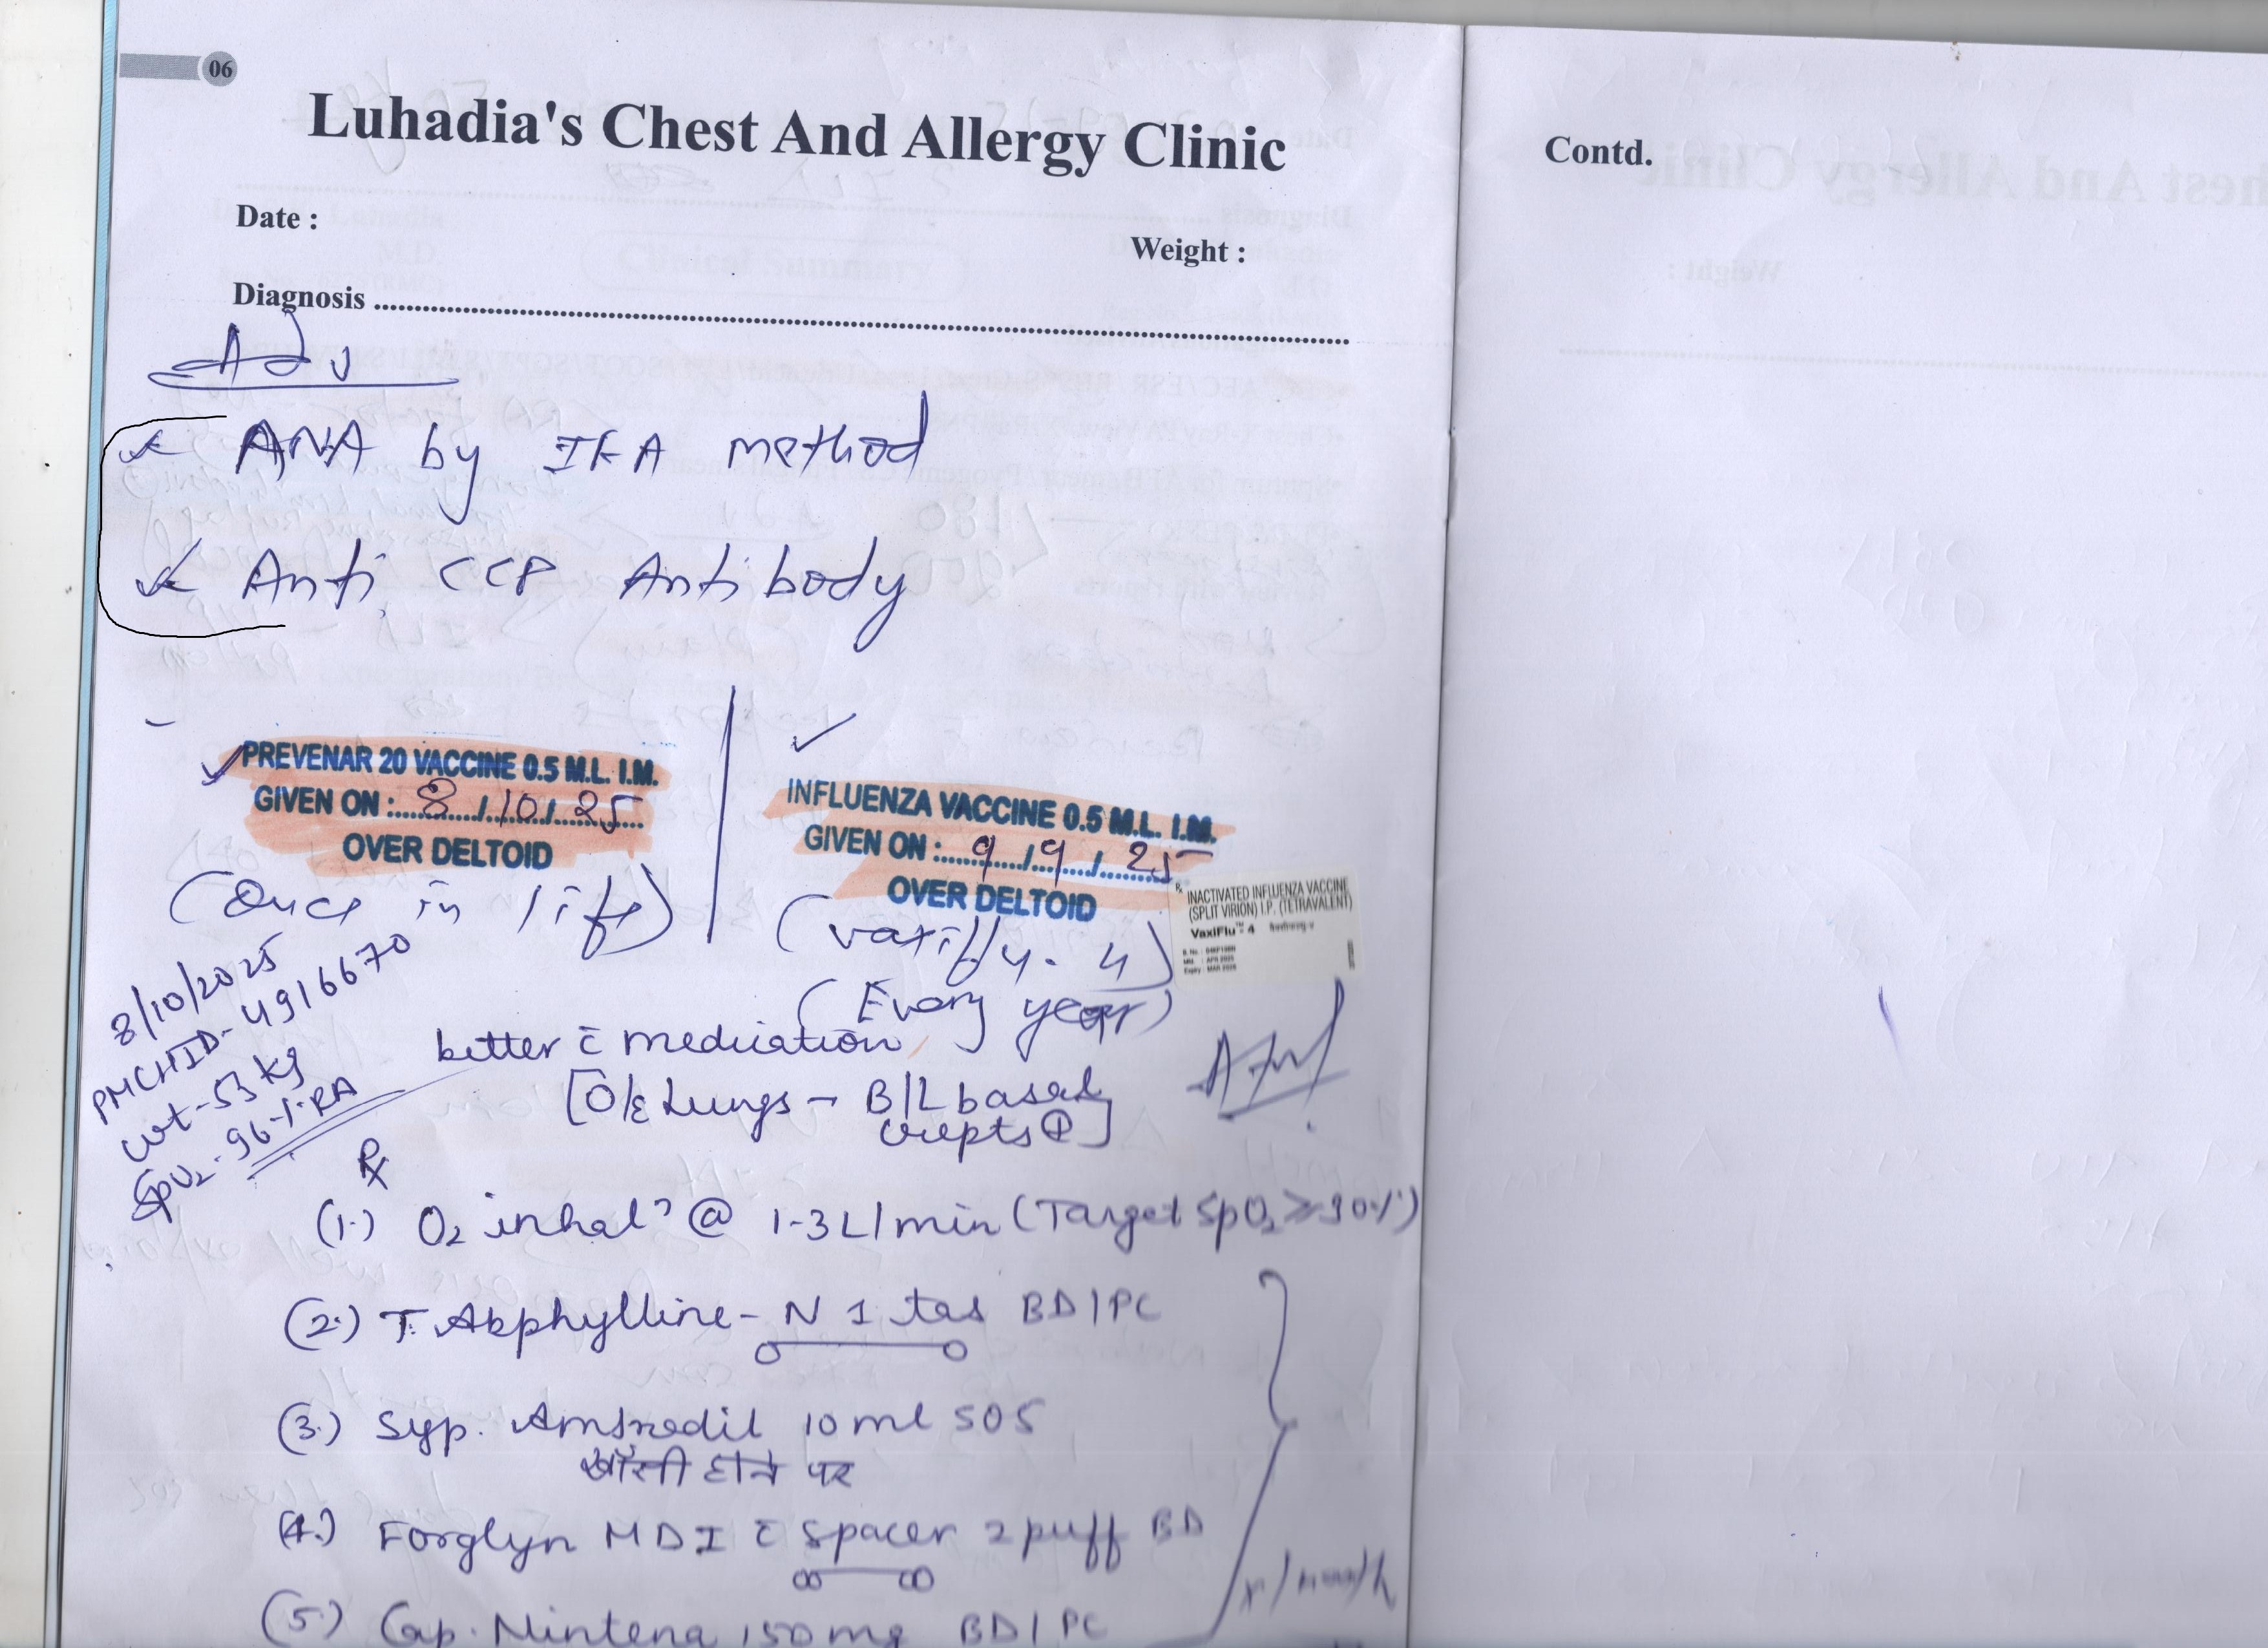 06
Luhadia's Chest And Allergy Clinic
Date :
Weight :
Diagnosis
Adv
ANA by IFA method
Anti CCP Antibody
PREVENAR 20 VACCINE 0.5 M.L. I.M.
GIVEN ON : 8/10/25
OVER DELTOID
(Once in life)
INFLUENZA VACCINE 0.5 M.L. I.M.
GIVEN ON : 9/9/25
OVER DELTOID
(vaxiflu-4)
(Every year)
INACTIVATED INFLUENZA VACCINE
(SPLIT VIRION) I.P. (TETRAVALENT)
VaxiFlu™- 4
8/10/2025
PMCHID-4916670
wt-53 kg
SpO2-96% RA
better c̄ medication
[O/E Lungs → B/L basal
crepts ⊕]
Rx
(1.) O2 inhalⁿ @ 1-3 L/min (Target SpO2 ≥90%)
(2.) T. Abphylline-N 1 tab BD/PC
(3.) Syp. Ambrodil 10 ml SOS
खाँसी होने पर
(4.) Forglyn MDI c̄ spacer 2 puff BD
(5.) Cap. Nintena 150 mg BD/PC
x 1 month
Contd.